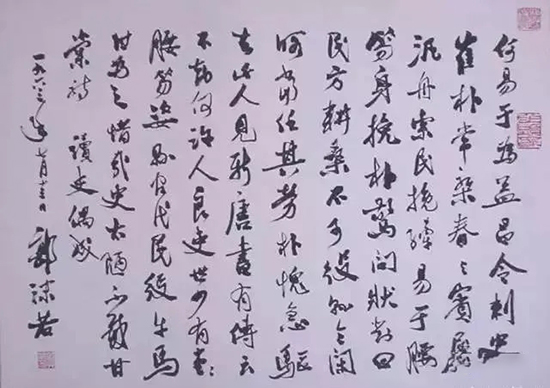 何易于為益昌令刺史
崔朴常乘春与賓屬
汎舟索民挽易于腰
笏身挽朴驚問狀對曰
民方耕桑不可役令閑
可任其勞朴愧急驅
去此人見新唐書有傳云
不知何許人良史世少有
腰笏姿代民役牛馬
為之惜哉史太陋不載甘
棠詩 讀史偶成
一九六三年七月十三日 郭沫若